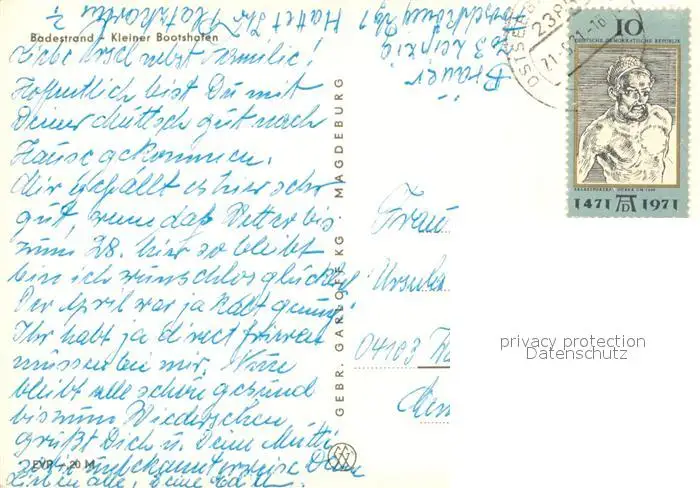 Badestrand - Kleiner Bootshafen
Liebe Ursel nebst Familie!
Hoffentlich bist Du mit
Deiner Muttsch gut nach
Hause gekommen.
Mir gefällt es hier sehr
gut, wenn das Wetter bis
zum 28. hier so bleibt
bin ich wunschlos glücklich
Der April war ja kalt genug!
Ihr habt ja direkt frieren
müssen bei mir. Nun
bleibt alle schön gesund
bis zum Wiedersehen
grüßt Dich u. Deine Mutti
sowie unbekannterweise Deine
Lieben alle, Deine
EVP -20 M
Hattet Ihr Platzkarten
?
Brauer
703 Leipzig
GEBR. GARLOFF KG · MAGDEBURG
OSTSEE
21.5.71-10
10
DEUTSCHE DEMOKRATISCHE REPUBLIK
1471 AD 1971
Frau
Ursula
04103
privacy protection
Datenschutz